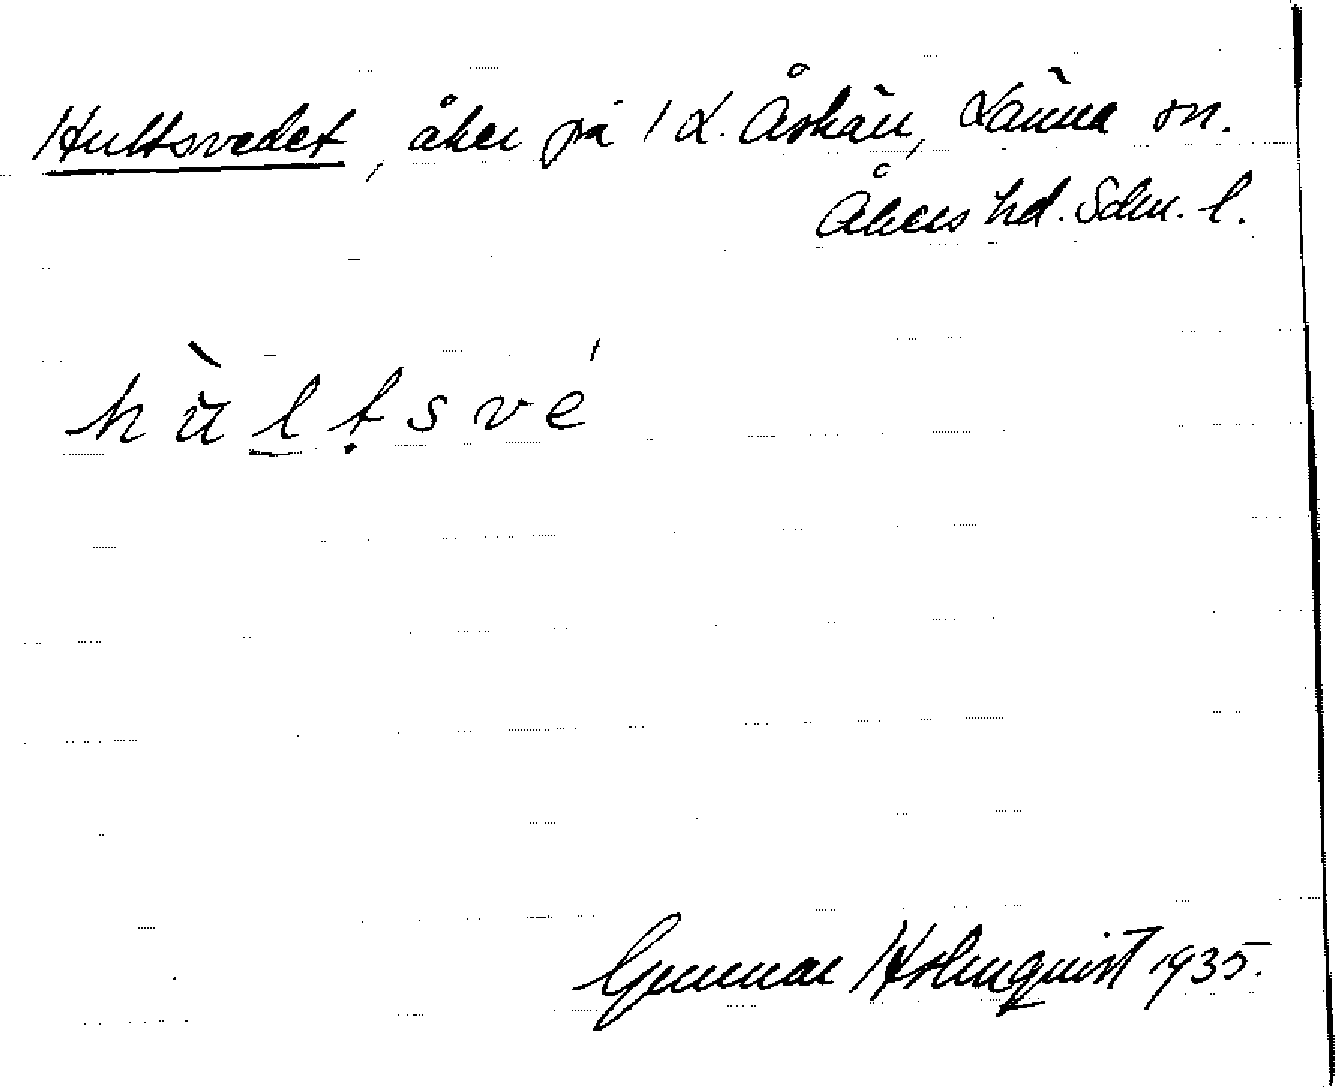 Hultsvedet, åker på 1 L. Åskäll, Länna sn.
Åkers hd. Södm. l.
hùltsvé
Gunnar Holmquist 1935.